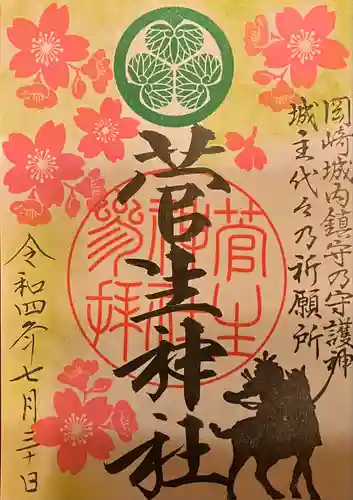 岡崎城内鎮守乃守護神
城主代々乃祈願所
菅生神社
菅生神社参拝
令和四年七月三十日